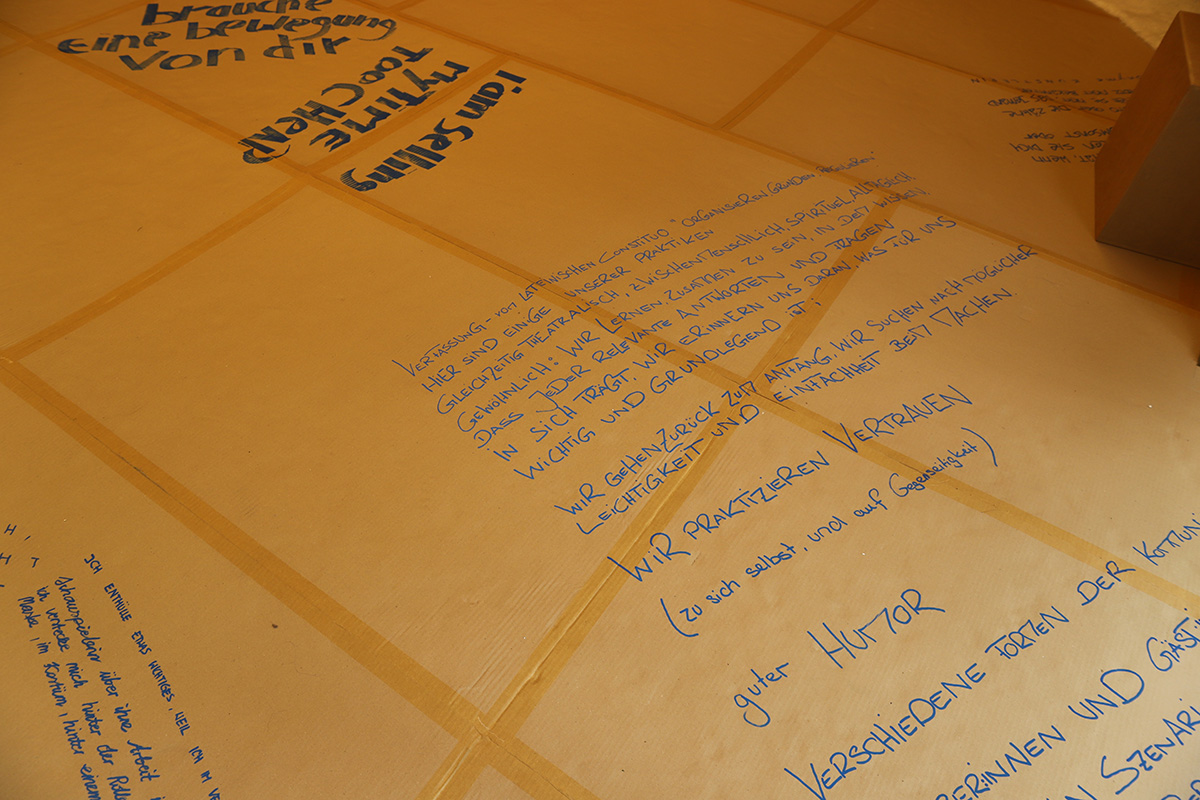 brauche
eine bewegung
von dir
i am Selling
my TIME
TOO CHEAP
VERFASSUNG - VOM LATEINISCHEN CONSTITUO "ORGANISIEREN GRÜNDEN REGULIEREN"
HIER SIND EINIGE UNSERER PRAKTIKEN
GLEICHZEITIG THEATRALISCH, ZWISCHENMENSCHLICH, SPIRITUEL, ALLTÄGLICH
GEWÖHNLICH: WIR LERNEN, ZUSAMMEN ZU SEIN, IN DEM WISSEN,
DASS JEDER RELEVANTE ANTWORTEN UND FRAGEN
IN SICH TRÄGT. WIR ERINNERN UNS DARAN, WAS FÜR UNS
WICHTIG UND GRUNDLEGEND IST:
WIR GEHEN ZURÜCK ZUM ANFANG, WIR SUCHEN NACH MÖGLICHER
LEICHTIGKEIT UND EINFACHHEIT BEIM MACHEN.
WIR PRAKTIZIEREN VERTRAUEN
(zu sich selbst, und auf Gegenseitigkeit)
guter HUMOR
VERSCHIEDENE FORMEN DER KOMMUNI
BER:INNEN UND GÄST
N SZENARI
ICH ENTHÜLLE ETWAS WICHTIGES, WEIL ICH IM VE
Schauspielerin über ihre Arbeit i
ich verstecke mich hinter der Rolle
Maske, im Kostüm, hinter einem